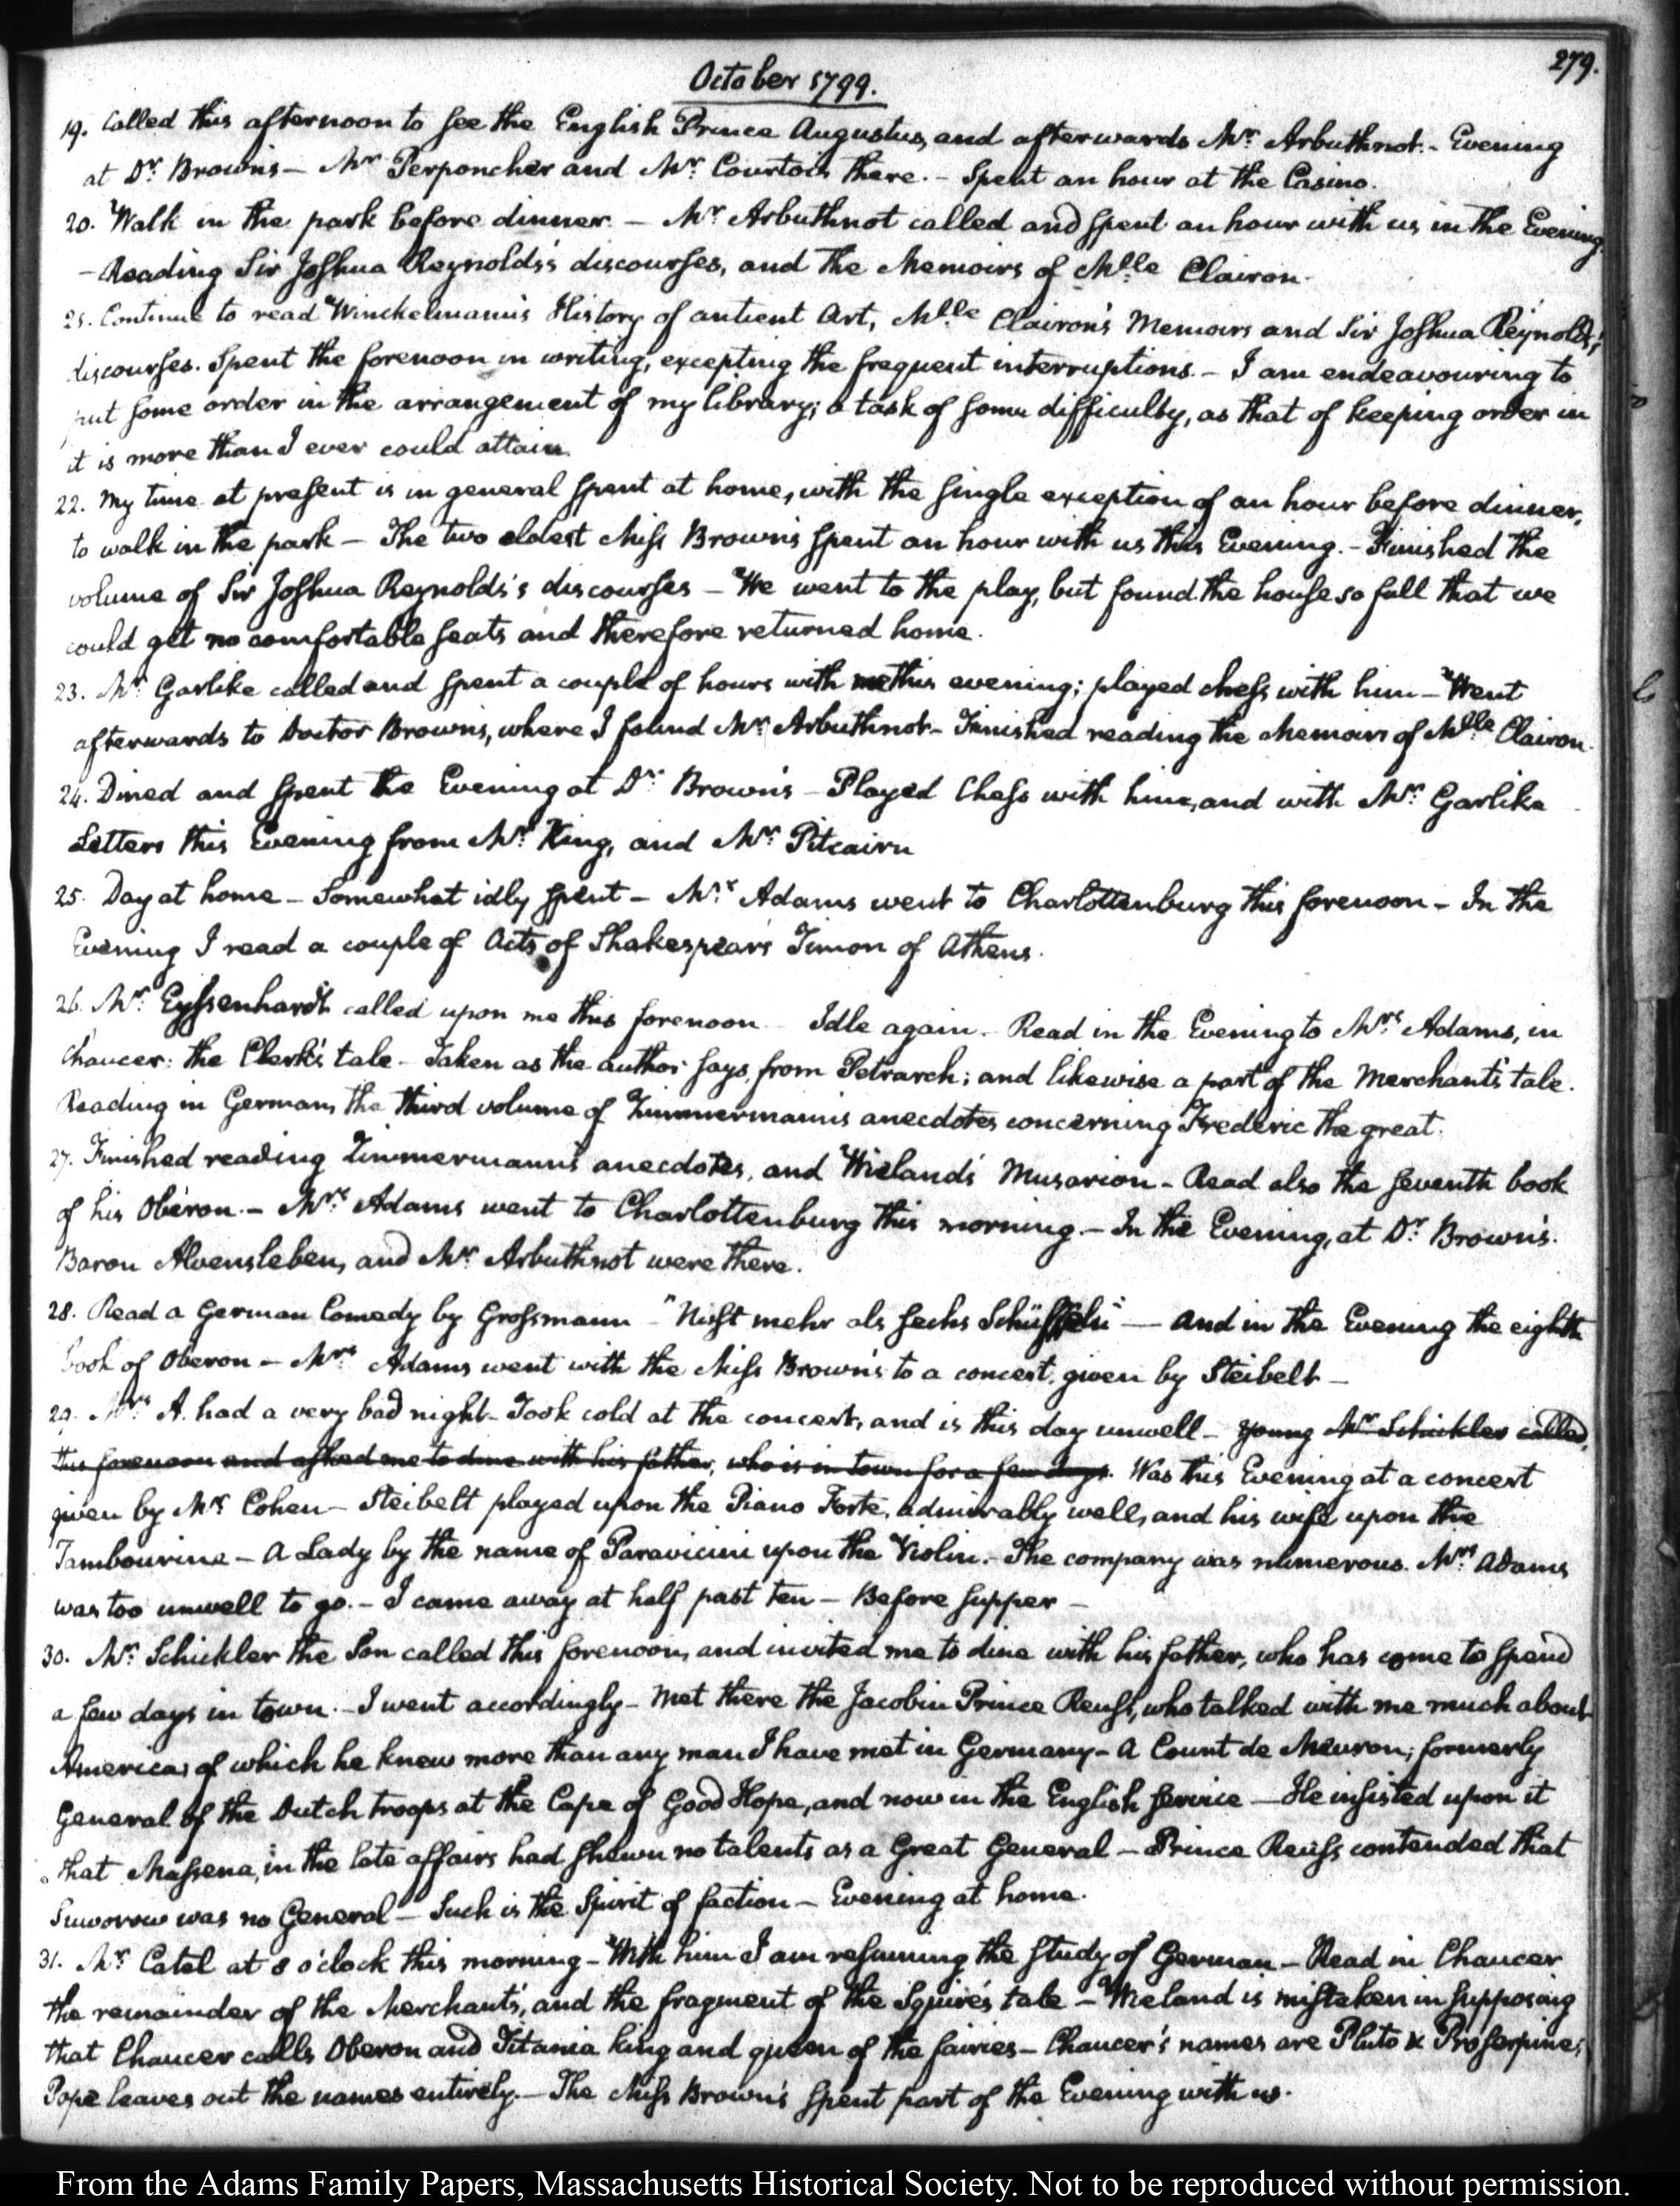 279.
October 1799.
19. Called this afternoon to see the English Prince Augustus, and afterwards Mr. Arbuthnot. - Evening
at Dr. Brown's — Mr. Perponcher and Mr. Courtois there. - Spent an hour at the Casino.
20. Walk in the park before dinner. — Mr. Arbuthnot called and spent an hour with us in the Evening.
— Reading Sir Joshua Reynolds's discourses, and the Memoirs of Mlle Clairon.
21. Continue to read Winckelmann's History of antient Art, Mlle Clairon's Memoirs and Sir Joshua Reynolds's
discourses. Spent the forenoon in writing, excepting the frequent interruptions. - I am endeavouring to
put some order in the arrangement of my library; a task of some difficulty, as that of keeping order in
it is more than I ever could attain.
22. My time at present is in general spent at home, with the single exception of an hour before dinner,
to walk in the park — The two eldest Miss Brown's spent an hour with us this Evening. - Finished the
volume of Sir Joshua Reynolds's discourses — We went to the play, but found the house so full that we
could get no comfortable seats and therefore returned home.
23. Mr. Garlike called and spent a couple of hours with me this evening; played chess with him — Went
afterwards to Doctor Brown's, where I found Mr. Arbuthnot - Finished reading the Memoirs of Mlle Clairon.
24. Dined and spent the Evening at Dr. Brown's — Played Chess with him, and with Mr. Garlike
Letters this Evening from Mr. King, and Mr. Pitcairn
25. Day at home — Somewhat idly spent — Mrs. Adams went to Charlottenburg this forenoon — In the
Evening I read a couple of Acts of Shakespear's Timon of Athens.
26. Mr. Eyssenhardt called upon me this forenoon Idle again. Read in the Evening to Mrs. Adams, in
Chaucer: the Clerk's tale - Taken as the author says, from Petrarch; and likewise a part of the Merchant's tale.
Reading in German, the third volume of Zimmermann's anecdotes concerning Frederic the great.
27. Finished reading Zimmermann's anecdotes, and Wieland's Musarion — Read also the seventh book
of his Oberon. — Mrs. Adams went to Charlottenburg this morning. — In the Evening, at Dr. Brown's.
Baron Alvensleben, and Mr. Arbuthnot were there.
28. Read a German Comedy by Grossmann — "Nicht mehr als sechs Schüsseln" — And in the Evening the eighth
book of Oberon — Mrs. Adams went with the Miss Brown's to a concert, given by Steibelt —
29. Mrs. A. had a very bad night - Took cold at the concert, and is this day unwell — young Mr. Schickler called,
this forenoon and asked me to dine with his father, who is in town for a few days. Was this Evening at a concert
given by Mrs. Cohen — Steibelt played upon the Piano Forte, admirably well, and his wife upon the
Tambourine — A Lady by the name of Paravicini upon the Violin. - The company was numerous. Mrs. Adams
was too unwell to go. - I came away at half past ten — Before supper —
30. Mr. Schickler the Son called this forenoon, and invited me to dine with his father, who has come to spend
a few days in town. - I went accordingly — Met there the Jacobin Prince Reuss, who talked with me much about
America; of which he knew more than any man I have met in Germany — A Count de Meuron; formerly
General of the Dutch troops at the Cape of Good Hope, and now in the English service — He insisted upon it
that Massena, in the late affairs had shewn no talents as a Great General — Prince Reuss contended that
Suworow was no General — Such is the Spirit of faction — Evening at home.
31. Mr. Catel at 8 o'clock this morning — With him I am resuming the study of German — Read in Chaucer
the remainder of the Merchant's, and the fragment of the Squire's tale — Wieland is mistaken in supposing
that Chaucer calls Oberon and Titania king and queen of the fairies — Chaucer's names are Pluto & Proserpine;
Pope leaves out the names entirely. — The Miss Brown's spent part of the Evening with us.
From the Adams Family Papers, Massachusetts Historical Society. Not to be reproduced without permission.